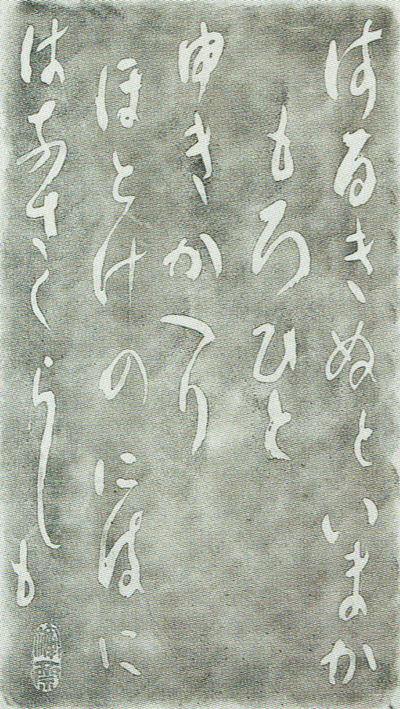 はるきぬといまか
もろひと
ゆきかへり
ほとけのにはに
はなさくらしも